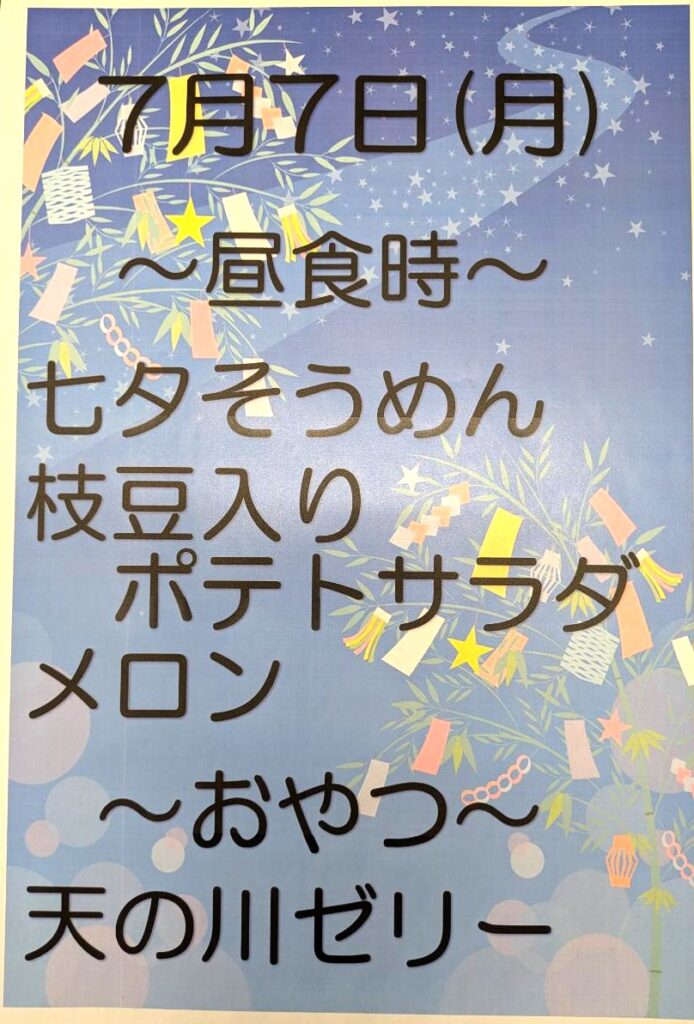 7月7日(月)
～昼食時～
七夕そうめん
枝豆入り
ポテトサラダ
メロン
～おやつ～
天の川ゼリー